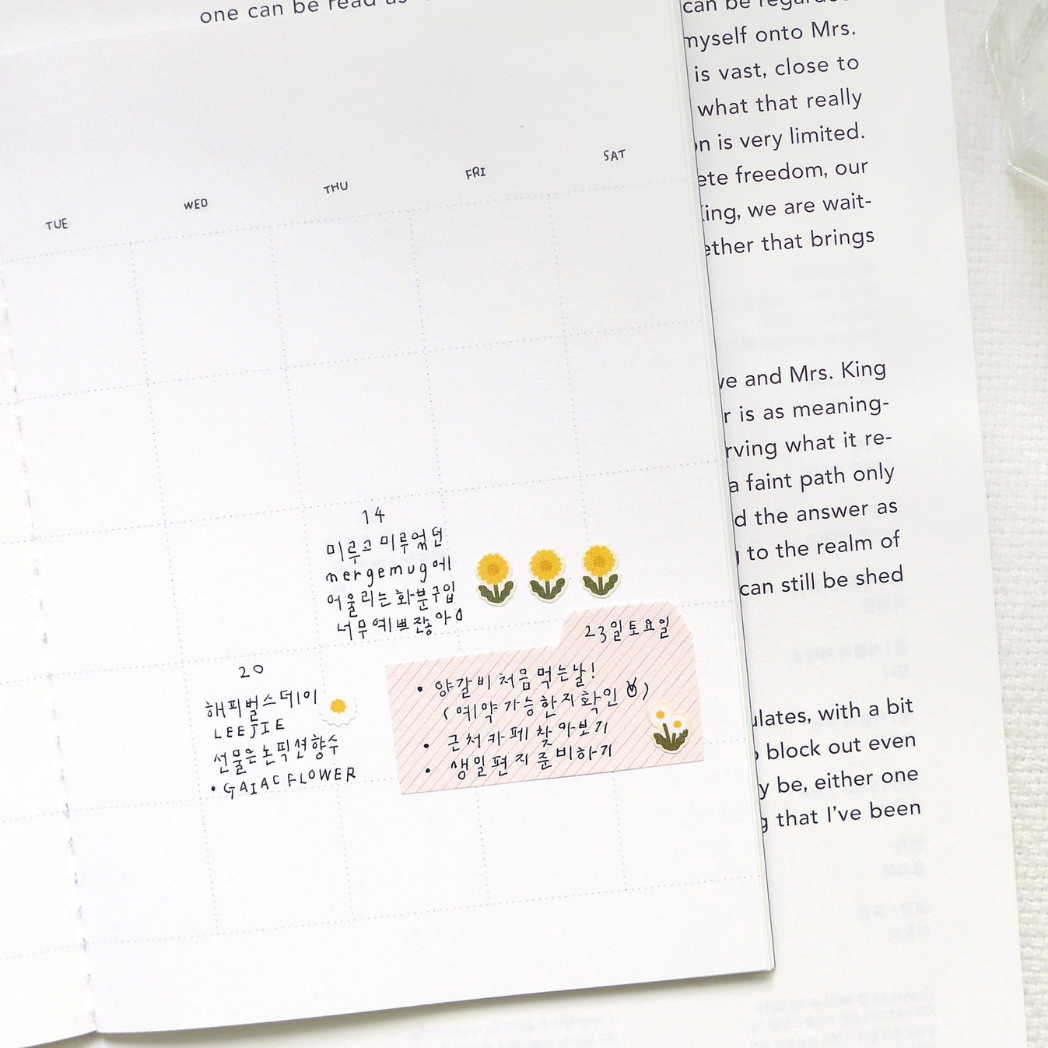 one can be read as
TUE
WED
THU
FRI
SAT
14
미루고 미루었던
mergemug에
어울리는 화분구입
너무예쁘잖아
20
해피벌스데이
LEEJIE
선물은논픽션향수
• GAIAC FLOWER
23일토요일
• 양갈비처음먹는날!
(예약가능한지확인)
• 근처카페찾아보기
• 생일편지준비하기
can be
myself onto Mrs.
is vast, close to
what that really
is very limited.
freedom, our
we are wait-
that brings
and Mrs. King
is as meaning-
what it re-
a faint path only
the answer as
to the realm of
can still be shed
with a bit
block out even
be, either one
that I've been